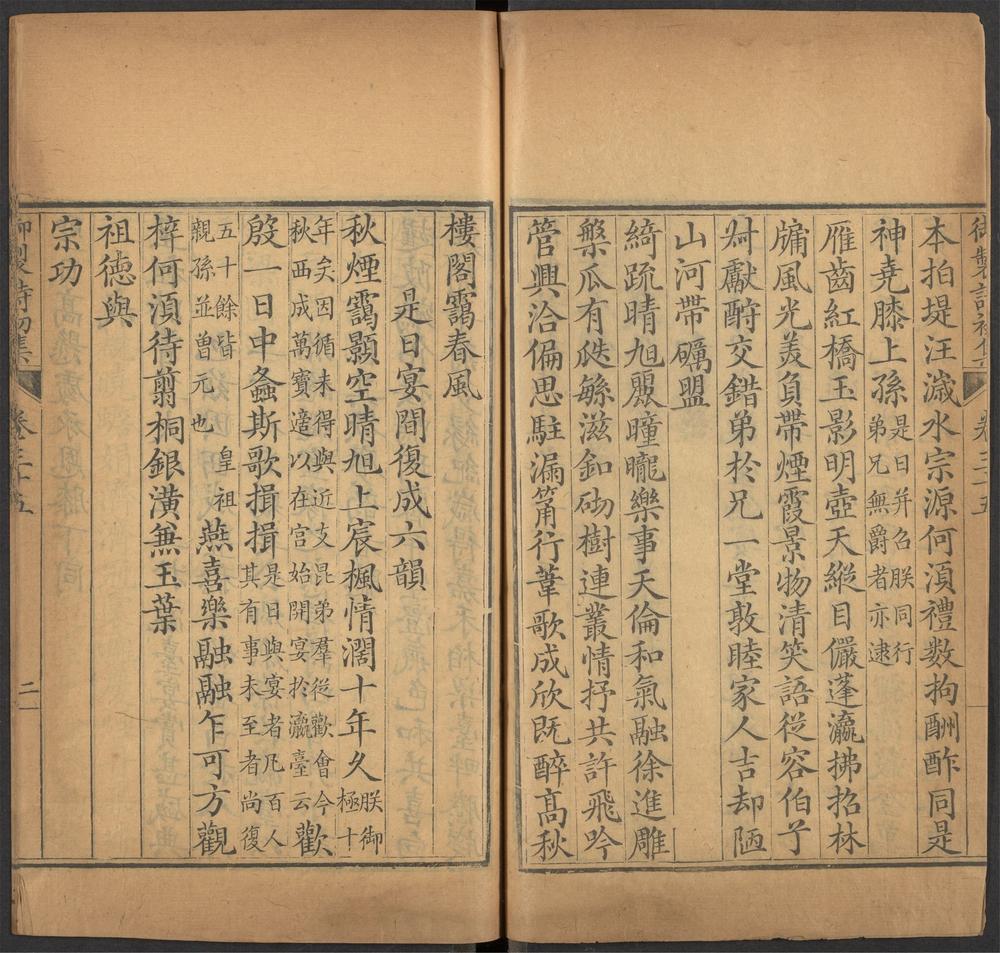 御製詩初集 卷三十五
本拍堤汪濊水宗源何湏禮數拘酬酢同是
神堯膝上孫是日并召朕同行
弟兄無爵者亦逮
雁齒紅橋玉影明壺天縱目儼蓬瀛拂招林
牗風光羙負帶煙霞景物清笑語從容伯予
叔獻酧交錯弟於兄一堂敦睦家人吉却陋
山河帶礪盟
綺疏晴旭麗曈曨樂事天倫和氣融徐進雕
槃瓜有瓞緜滋釦砌樹連叢情抒共許飛吟
管興洽偏思駐漏筩行葦歌成欣既醉高秋
樓閣靄春風
是日宴間復成六韻
秋煙靄顥空晴旭上宸楓情濶十年久朕御
極十
年矣因循未得與近支昆弟羣從歡會今
秋西成萬寶適以在宫始開宴於瀛臺云歡
殷一日中螽斯歌揖揖是日與宴者凡百人
其有事未至者尚復
五十餘皆皇祖
親孫並曾元也燕喜樂融融乍可方觀
梓何湏待翦桐銀潢兼玉葉
祖德與
宗功
御製詩初集 卷三十五 二